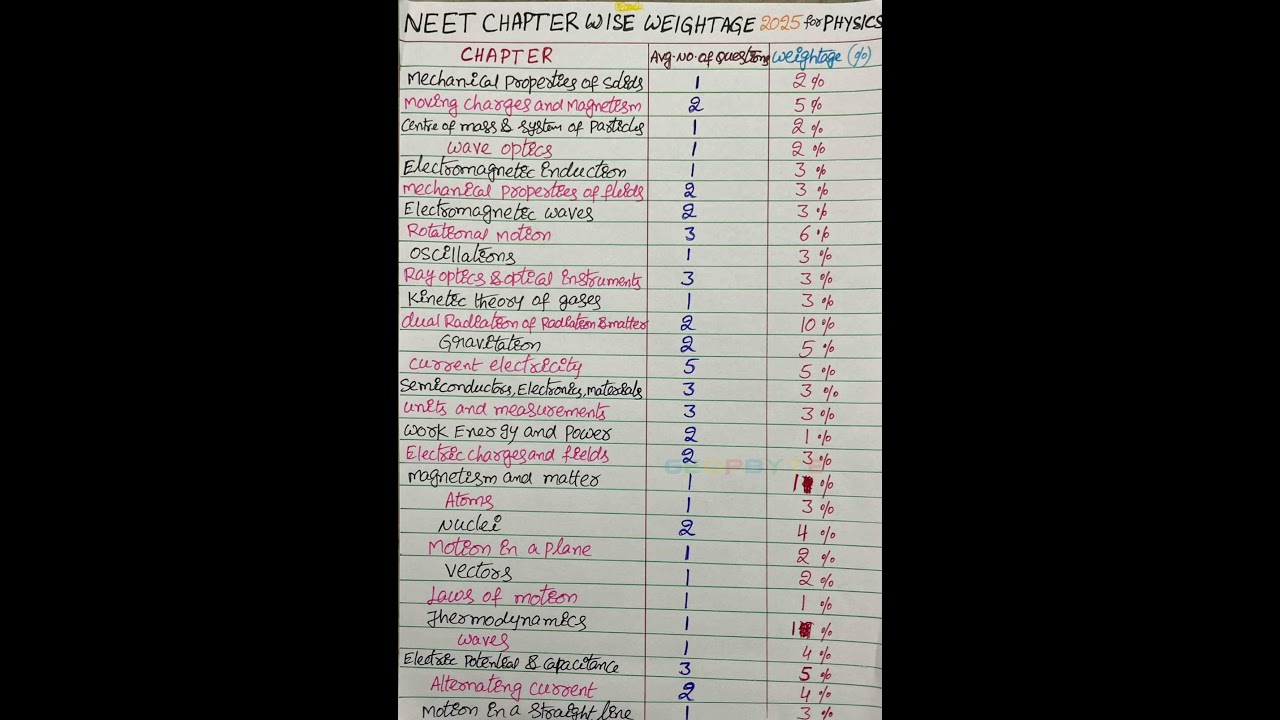 NEET CHAPTER WISE WEIGHTAGE 2025 for PHYSICS
CHAPTER Avg.No.of Questions Weightage (%)
Mechanical properties of Solids 1 2%
Moving charges and Magnetism 2 5%
Centre of mass & system of Particles 1 2%
Wave optics 1 2%
Electromagnetic Induction 1 3%
Mechanical properties of fluids 2 3%
Electromagnetic waves 2 3%
Rotational motion 3 6%
Oscillations 1 3%
Ray optics & optical Instruments 3 3%
Kinetic theory of gases 1 3%
dual Radiation of Radiation & matter 2 10%
Gravitation 2 5%
Current electricity 5 5%
Semiconductors, Electronics, materials 3 3%
units and measurements 3 3%
Work Energy and Power 2 1%
Electric charges and fields 2 3%
GEOPBYTE
Magnetism and matter 1 1%
Atoms 1 3%
Nuclei 2 4%
Motion in a plane 1 2%
Vectors 1 2%
Laws of motion 1 1%
Thermodynamics 1 1%
Waves 1 4%
Electric Potential & Capacitance 3 5%
Alternating current 2 4%
Motion in a Straight line 1 3%